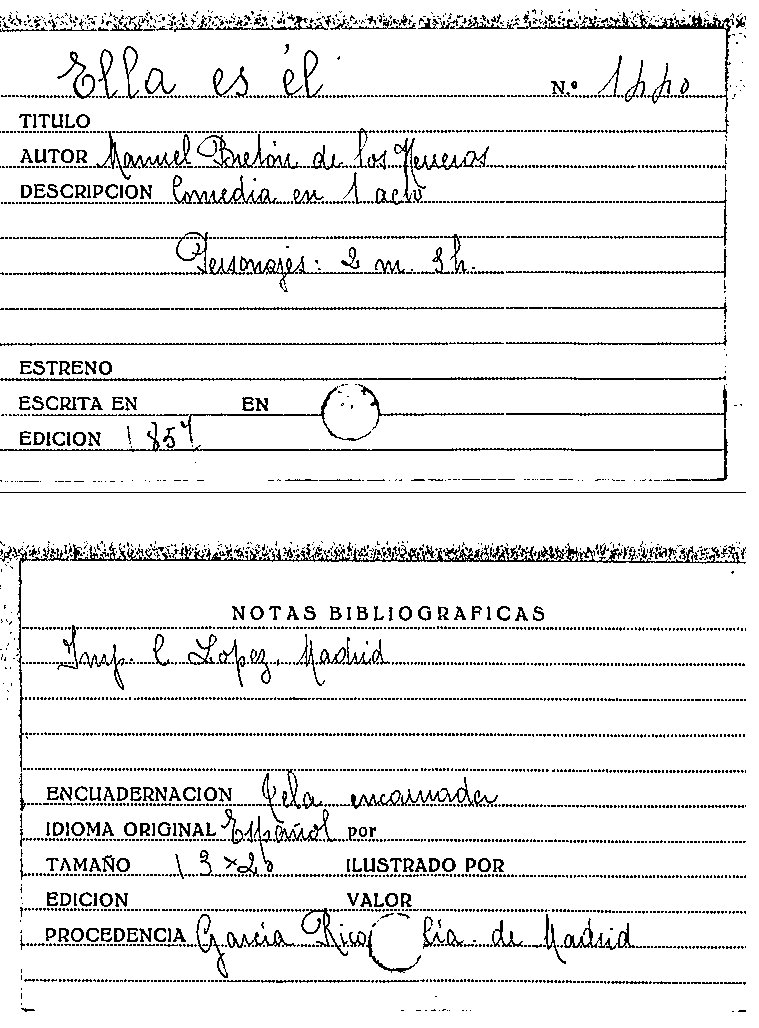 Ella es él
N.º
TITULO
AUTOR Manuel Bretón de los Herreros
DESCRIPCION Comedia en 1 acto
Personajes: 2 m. 3 h.
ESTRENO
ESCRITA EN EN
EDICION 1857
NOTAS BIBLIOGRAFICAS
Imp. C. Lopez. Madrid
ENCUADERNACION Tela encarnada
IDIOMA ORIGINAL Español por
TAMAÑO 13 x 20 ILUSTRADO POR
EDICION VALOR
PROCEDENCIA Garcia Rico Cía. de Madrid